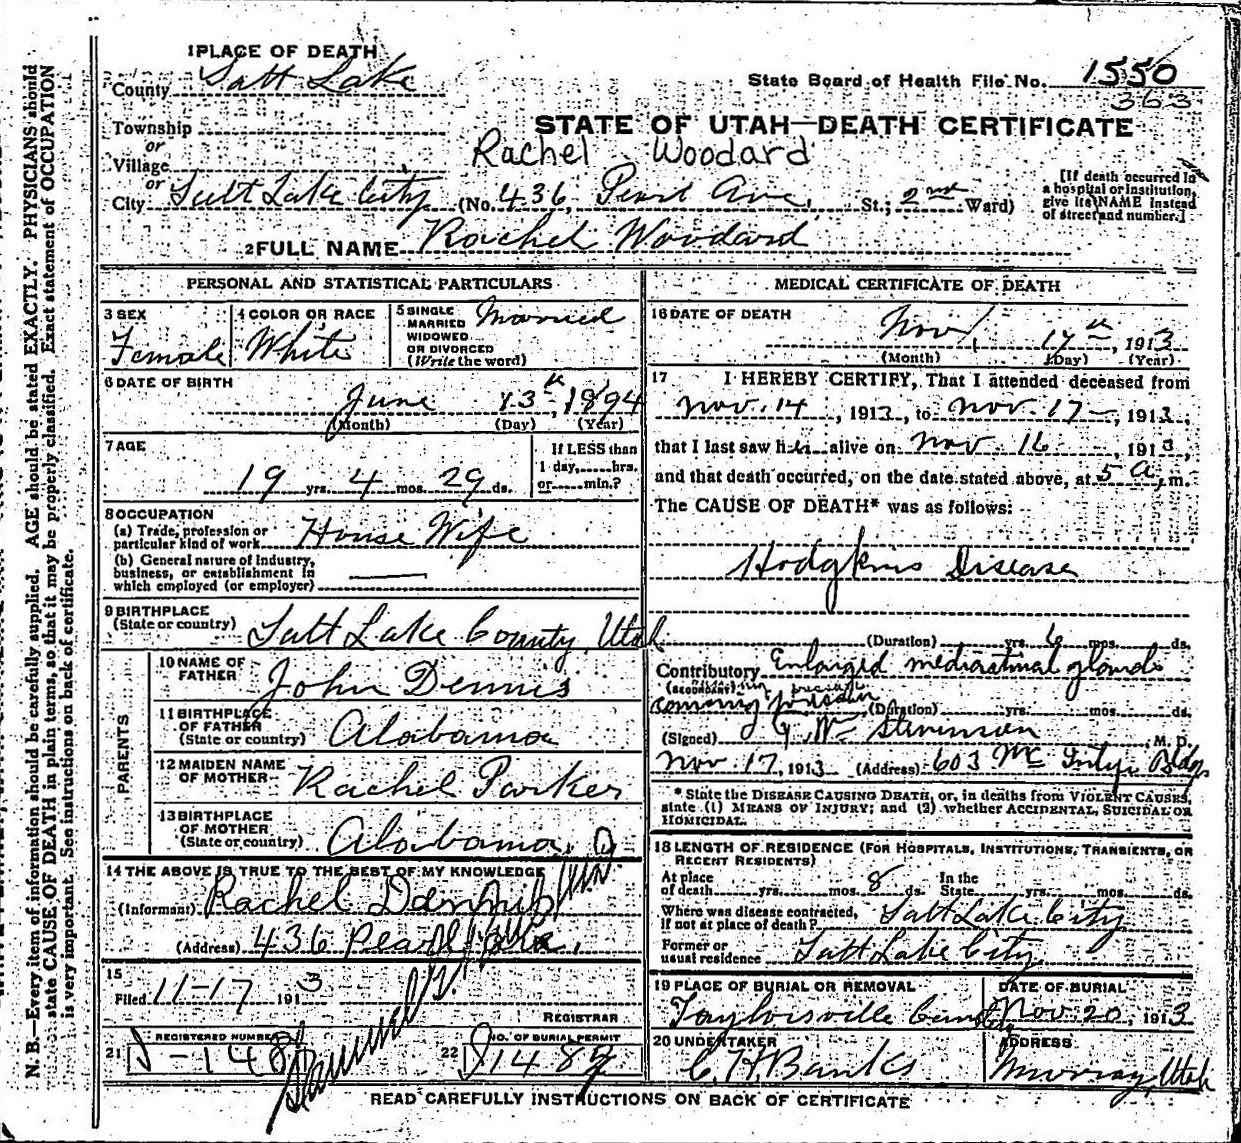 1 PLACE OF DEATH
County Salt Lake
State Board of Health File No. 1550
363
Township
or
Village
or
STATE OF UTAH—DEATH CERTIFICATE
Rachel Woodard
City Salt Lake City (No. 436, Pearl Ave, St.; 2nd Ward)
[If death occurred in a hospital or institution, give its NAME instead of street and number.]
2 FULL NAME Rachel Woodard
PERSONAL AND STATISTICAL PARTICULARS
3 SEX
Female
4 COLOR OR RACE
White
5 SINGLE MARRIED WIDOWED OR DIVORCED (Write the word)
Married
6 DATE OF BIRTH
June 13th, 1894
(Month) (Day) (Year)
7 AGE
19 yrs. 4 mos. 29 ds.
If LESS than 1 day, hrs. or min.?
8 OCCUPATION
(a) Trade, profession or particular kind of work House Wife
(b) General nature of industry, business, or establishment in which employed (or employer)
9 BIRTHPLACE
(State or country) Salt Lake County, Utah
PARENTS
10 NAME OF FATHER John Dennis
11 BIRTHPLACE OF FATHER (State or country) Alabama
12 MAIDEN NAME OF MOTHER Rachel Parker
13 BIRTHPLACE OF MOTHER (State or country) Alabama
14 THE ABOVE IS TRUE TO THE BEST OF MY KNOWLEDGE
(Informant) Rachel Dennis
(Address) 436 Pearl Ave.
15
Filed 11-17 1913
REGISTRAR
REGISTERED NUMBER
21
NO. OF BURIAL PERMIT
22
MEDICAL CERTIFICATE OF DEATH
16 DATE OF DEATH
Nov. 17th, 1913
(Month) (Day) (Year)
17 I HEREBY CERTIFY, That I attended deceased from
Nov. 14, 1913, to Nov. 17, 1913,
that I last saw her alive on Nov. 16, 1913,
and that death occurred, on the date stated above, at 5 a, m.
The CAUSE OF DEATH* was as follows:
Hodgkins Disease
(Duration) yrs. 6 mos. ds.
Contributory Enlarged mediastinal glands
(SECONDARY)
(Duration) yrs. mos. ds.
(Signed) Stevenson, M. D.
Nov. 17, 1913 (Address) 603 McIntyre Bldg
* State the DISEASE CAUSING DEATH, or, in deaths from VIOLENT CAUSES, state (1) MEANS OF INJURY; and (2) whether ACCIDENTAL, SUICIDAL OR HOMICIDAL.
18 LENGTH OF RESIDENCE (FOR HOSPITALS, INSTITUTIONS, TRANSIENTS, OR RECENT RESIDENTS)
At place of death yrs. mos. 8 ds. In the State yrs. mos. ds.
Where was disease contracted, if not at place of death? Salt Lake City
Former or usual residence Salt Lake City
19 PLACE OF BURIAL OR REMOVAL
Taylorsville Cemetery
DATE OF BURIAL
Nov 20, 1913
20 UNDERTAKER
C. H. Banks
ADDRESS
Murray, Utah
READ CAREFULLY INSTRUCTIONS ON BACK OF CERTIFICATE
N. B.—Every item of information should be carefully supplied. AGE should be stated EXACTLY. PHYSICIANS should
state CAUSE OF DEATH in plain terms, so that it may be properly classified. Exact statement of OCCUPATION
is very important. See instructions on back of certificate.